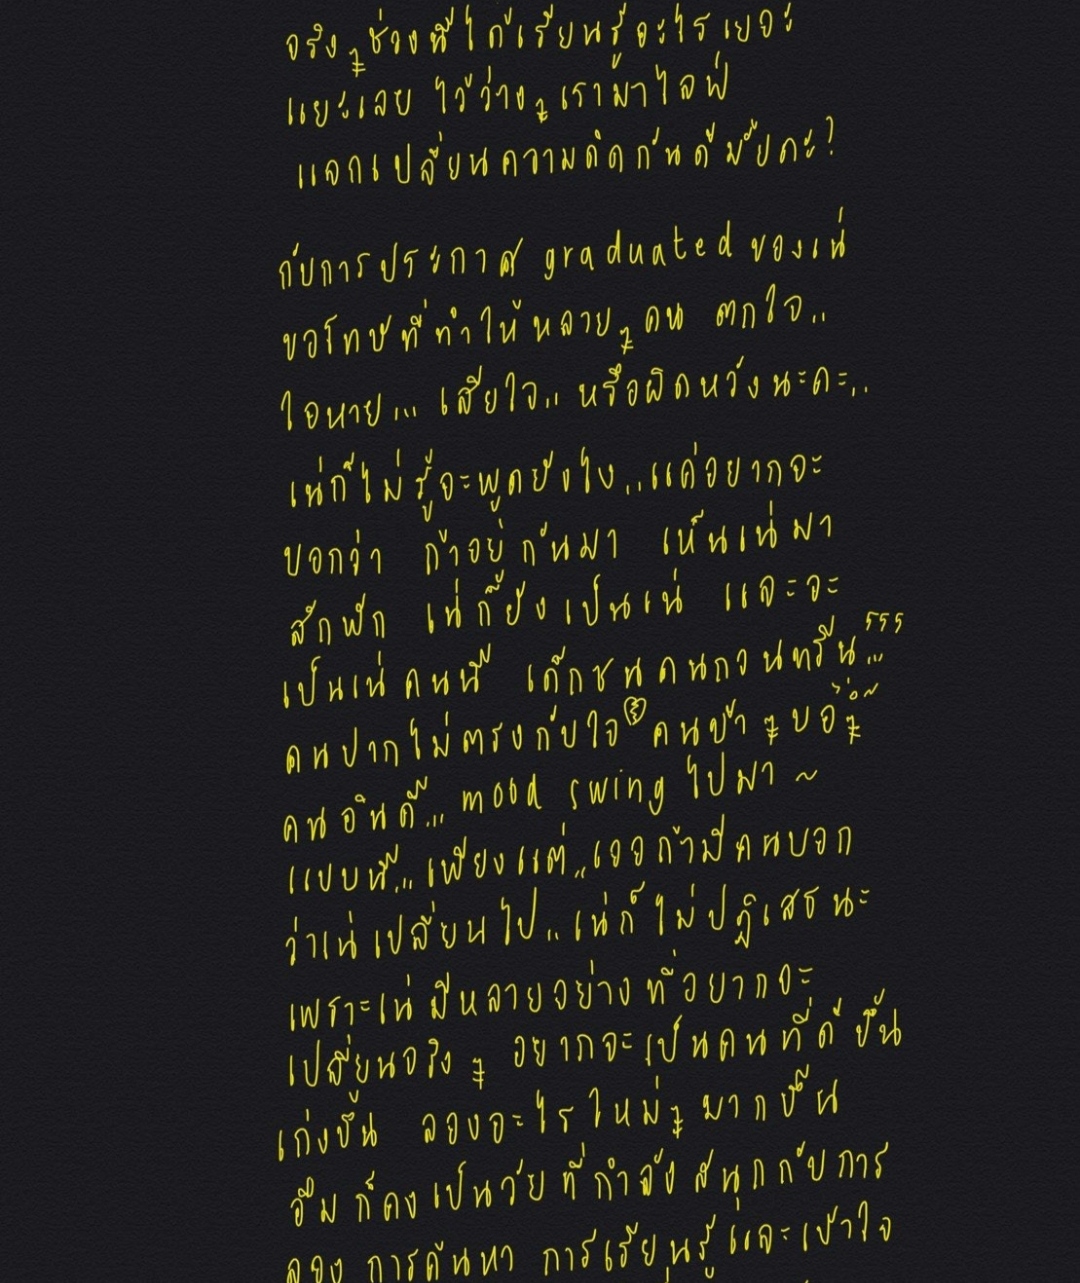 จริงๆช่วงนี้ได้เรียนรู้อะไรเยอะ
แยะเลย ไว้ว่างๆเรามาไลฟ์
แลกเปลี่ยนความคิดกันดีมั้ยคะ?
กับการประกาศ graduated ของเน่
ขอโทษที่ทำให้หลายๆคน ตกใจ..
ใจหาย... เสียใจ.. หรือผิดหวังนะคะ..
เน่ก็ไม่รู้จะพูดยังไง..แค่อยากจะ
บอกว่า ถ้าอยู่กันมา เห็นเน่มา
สักพัก เน่ก็ยังเป็นเน่ และจะ
เป็นเน่คนนี้ เด็กซนคนกวนทรีน...555
คนปากไม่ตรงกับใจ คนบ้าๆบอๆ
คนอินดี้... mood swing ไปมา ~
แบบนี้...เพียงแต่..เออถ้ามีคนบอก
ว่าเน่เปลี่ยนไป..เน่ก็ไม่ปฏิเสธนะ
เพราะเน่มีหลายอย่างที่อยากจะ
เปลี่ยนจริงๆ อยากจะเป็นคนที่ดีขึ้น
เก่งขึ้น ลองอะไรใหม่ๆมากขึ้น
อืม ก็คงเป็นวัยที่กำลังสนุกกับการ
ลอง การค้นหา การเรียนรู้และเข้าใจ